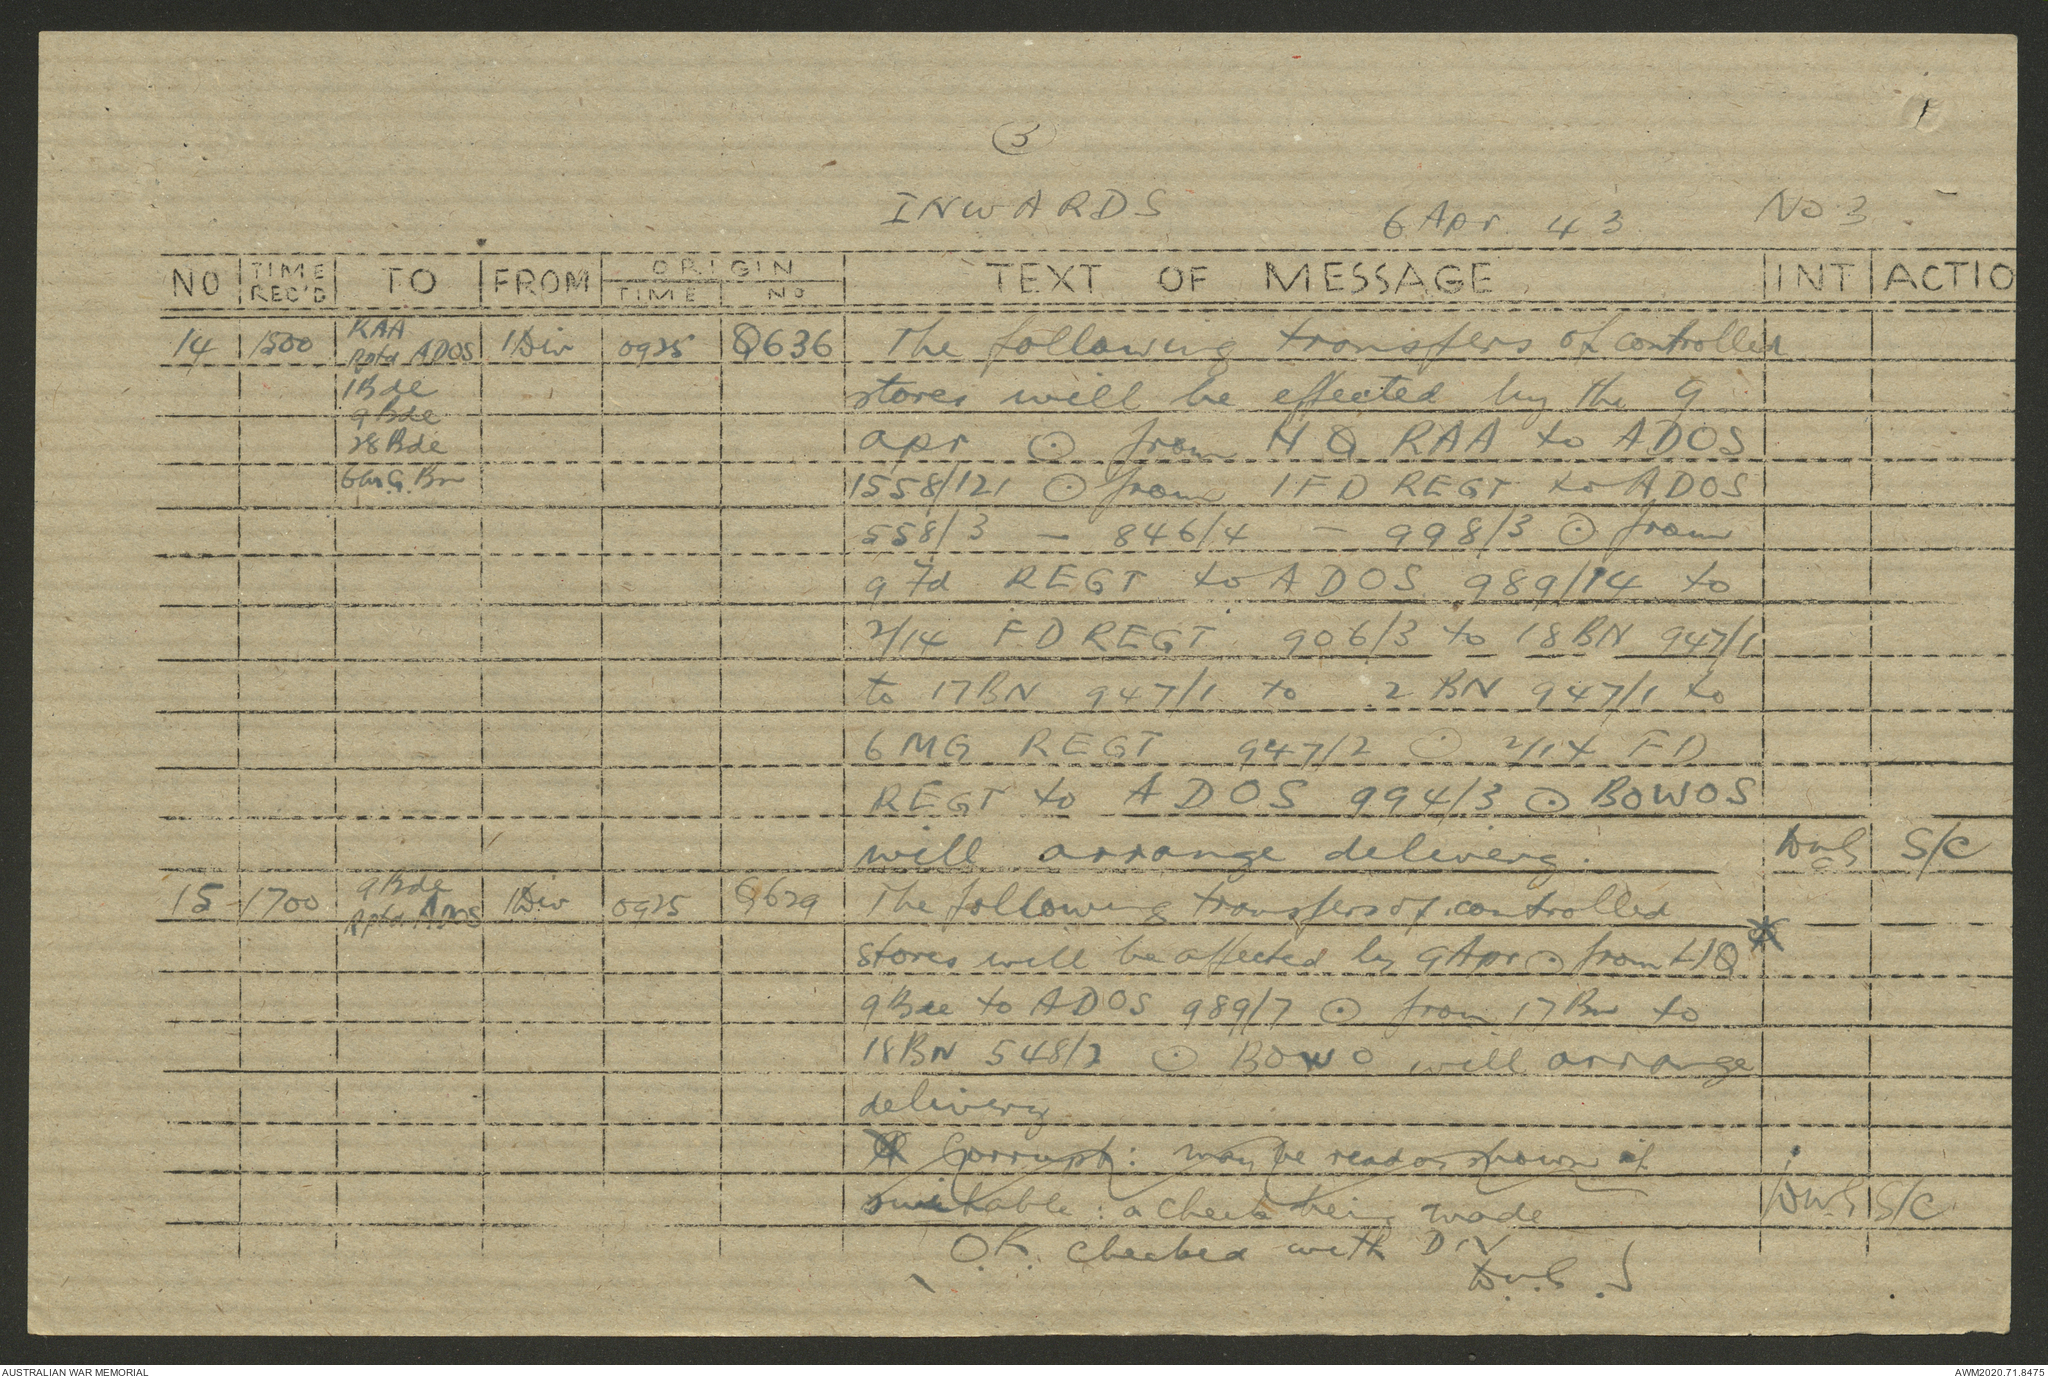 3
INWARDS 6 Apr. 43 No 3.
NO TIME REC'D TO FROM ORIGIN TIME NO TEXT OF MESSAGE INT ACTIO
14 1500 RAA Rptd ADOS 1Div 0925 Q636 The following transfers of controlled
1 Bde stores will be effected by the 9
9 Bde
28 Bde apr ⊙ from HQ RAA to ADOS
6 M.G. Bn 1558/121 ⊙ from 1 FD REGT to ADOS
558/3 – 846/4 – 998/3 ⊙ from
9 Fd REGT to ADOS 989/14 to
2/14 FD REGT 906/3 to 18 BN 947/1
to 17 BN 947/1 to 2 BN 947/1 to
6 MG REGT 947/2 ⊙ 2/14 FD
REGT to ADOS 994/3 ⊙ BOWOS
will arrange delivery. DwG S/C
15 1700 9 Bde Rptd ADOS 1Div 0925 Q629 The following transfers of controlled
stores will be affected by 9 Apr ⊙ from HQ *
9 Bde to ADOS 989/7 ⊙ from 17 Bn to
18 BN 548/2 ⊙ BOWO will arrange
delivery
* Corrupt: may be read as shown if
suitable: a check being made DwG S/C
O.K. checked with DIV
DwG
AUSTRALIAN WAR MEMORIAL AWM2020.71.8475